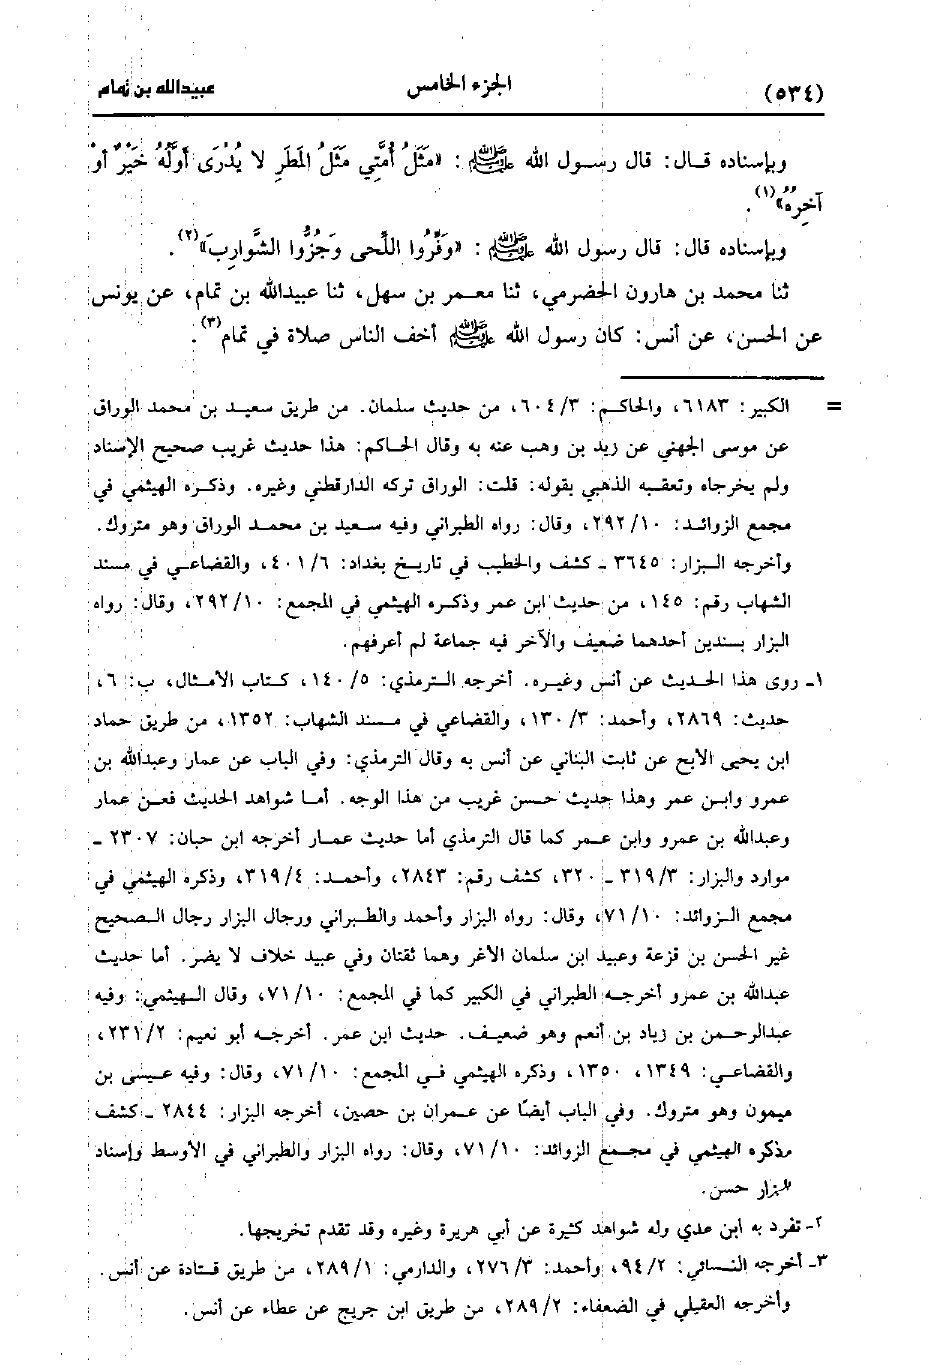 (٥٣٤) الجزء الخامس عبيدالله بن تمام
وبإسناده قال: قال رسول الله ﷺ: «مَثَلُ أُمَّتِي مَثَلُ المَطَرِ لا يُدْرَى أَوَّلُهُ خَيْرٌ أَوْ
آخِرُهُ»(١).
وبإسناده قال: قال رسول الله ﷺ: «وَفِّرُوا اللِّحى وَجُزُّوا الشَّوارِبَ»(٢).
ثنا محمد بن هارون الحضرمي، ثنا معمر بن سهل، ثنا عبيدالله بن تمام، عن يونس
عن الحسن، عن أنس: كان رسول الله ﷺ أخف الناس صلاة في تمام(٣).
= الكبير: ٦١٨٣، والحاكم: ٦٠٤/٣، من حديث سلمان. من طريق سعيد بن محمد الوراق
عن موسى الجهني عن زيد بن وهب عنه به وقال الحاكم: هذا حديث غريب صحيح الإسناد
ولم يخرجاه وتعقبه الذهبي بقوله: قلت: الوراق تركه الدارقطني وغيره. وذكره الهيثمي في
مجمع الزوائد: ٢٩٢/١٠، وقال: رواه الطبراني وفيه سعيد بن محمد الوراق وهو متروك.
وأخرجه البزار: ٣٦٤٥ ـ كشف والخطيب في تاريخ بغداد: ٤٠١/٦، والقضاعي في مسند
الشهاب رقم: ١٤٥، من حديث ابن عمر وذكره الهيثمي في المجمع: ٢٩٢/١٠، وقال: رواه
البزار بسندين أحدهما ضعيف والآخر فيه جماعة لم أعرفهم.
١ـ روى هذا الحديث عن أنس وغيره. أخرجه الترمذي: ١٤٠/٥، كتاب الأمثال، ب: ٦،
حديث: ٢٨٦٩، وأحمد: ١٣٠/٣، والقضاعي في مسند الشهاب: ١٣٥٢، من طريق حماد
ابن يحيى الأبح عن ثابت البناني عن أنس به وقال الترمذي: وفي الباب عن عمار وعبدالله بن
عمرو وابن عمر وهذا حديث حسن غريب من هذا الوجه. أما شواهد الحديث فعن عمار
وعبدالله بن عمرو وابن عمر كما قال الترمذي أما حديث عمار أخرجه ابن حبان: ٢٣٠٧ ـ
موارد والبزار: ٣١٩/٣ ـ ٣٢٠، كشف رقم: ٢٨٤٣، وأحمد: ٣١٩/٤، وذكره الهيثمي في
مجمع الزوائد: ٧١/١٠، وقال: رواه البزار وأحمد والطبراني ورجال البزار رجال الصحيح
غير الحسن بن قزعة وعبيد ابن سلمان الأغر وهما ثقتان وفي عبيد خلاف لا يضر. أما حديث
عبدالله بن عمرو أخرجه الطبراني في الكبير كما في المجمع: ٧١/١٠، وقال الهيثمي: وفيه
عبدالرحمن بن زياد بن أنعم وهو ضعيف. حديث ابن عمر. أخرجه أبو نعيم: ٢٣١/٢،
والقضاعي: ١٣٤٩، ١٣٥٠، وذكره الهيثمي في المجمع: ٧١/١٠، وقال: وفيه عيسى بن
ميمون وهو متروك. وفي الباب أيضًا عن عمران بن حصين، أخرجه البزار: ٢٨٤٤ ـ كشف
مذكره الهيثمي في مجمع الزوائد: ٧١/١٠، وقال: رواه البزار والطبراني في الأوسط وإسناد
البزار حسن.
٢- تفرد به ابن عدي وله شواهد كثيرة عن أبي هريرة وغيره وقد تقدم تخريجها.
٣ـ أخرجه النسائي: ٩٤/٢، وأحمد: ٢٧٦/٣، والدارمي: ٢٨٩/١، من طريق قتادة عن أنس.
وأخرجه العقيلي في الضعفاء: ٢٨٩/٢، من طريق ابن جريج عن عطاء عن أنس.